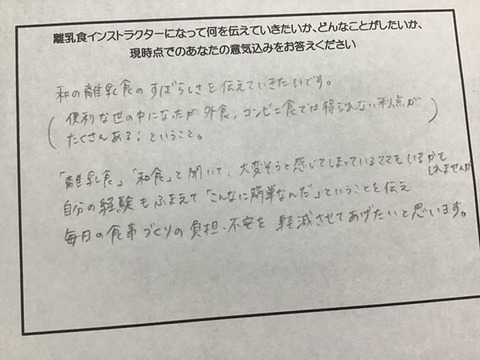 離乳食インストラクターになって何を伝えていきたいか、どんなことがしたいか、
現時点でのあなたの意気込みをお答えください
和の離乳食のすばらしさを伝えていきたいです。
(便利な世の中になったが外食、コンビニ食では得られない利点が
たくさんある!ということ。)
「離乳食」「和食」と聞いて、大変そうと感じてしまっているママもいるかもしれませんが
自分の経験もふまえて「こんなに簡単なんだ」ということを伝え
毎日の食事づくりの負担、不安を軽減させてあげたいと思います。